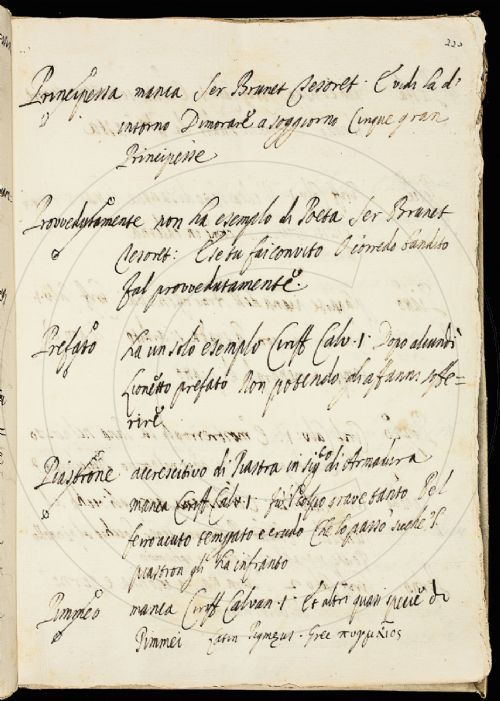 220
Principessa manca Ser Brunet Tesoret. E vidi la di
intorno Dimorare a soggiorno Cinque gran
Principesse
Provvedutamente non ha esempio di Poeta Ser Brunet
Tesoret: E se tu fai convito O corredo bandito
Fal provvedutamente.
Prefato ha un solo esempio Ciriff Calv. 1. Dopo alcun dì
Lionetto prefato Non potendo gli affanni soffe=
rire
Piastrone accrescitivo di Piastra in sigto di Armadura
manca Ciriff Calv. 1. fu 'l colpo grave tanto Del
ferro acuto temprato e crudo Che lo passò
piastron gli ha infranto
Pimmeo manca Ciriff Calvan. 1. Et altri quasi specie di
Pimmei Latin Pigmæus. Grec πυγμαῖος